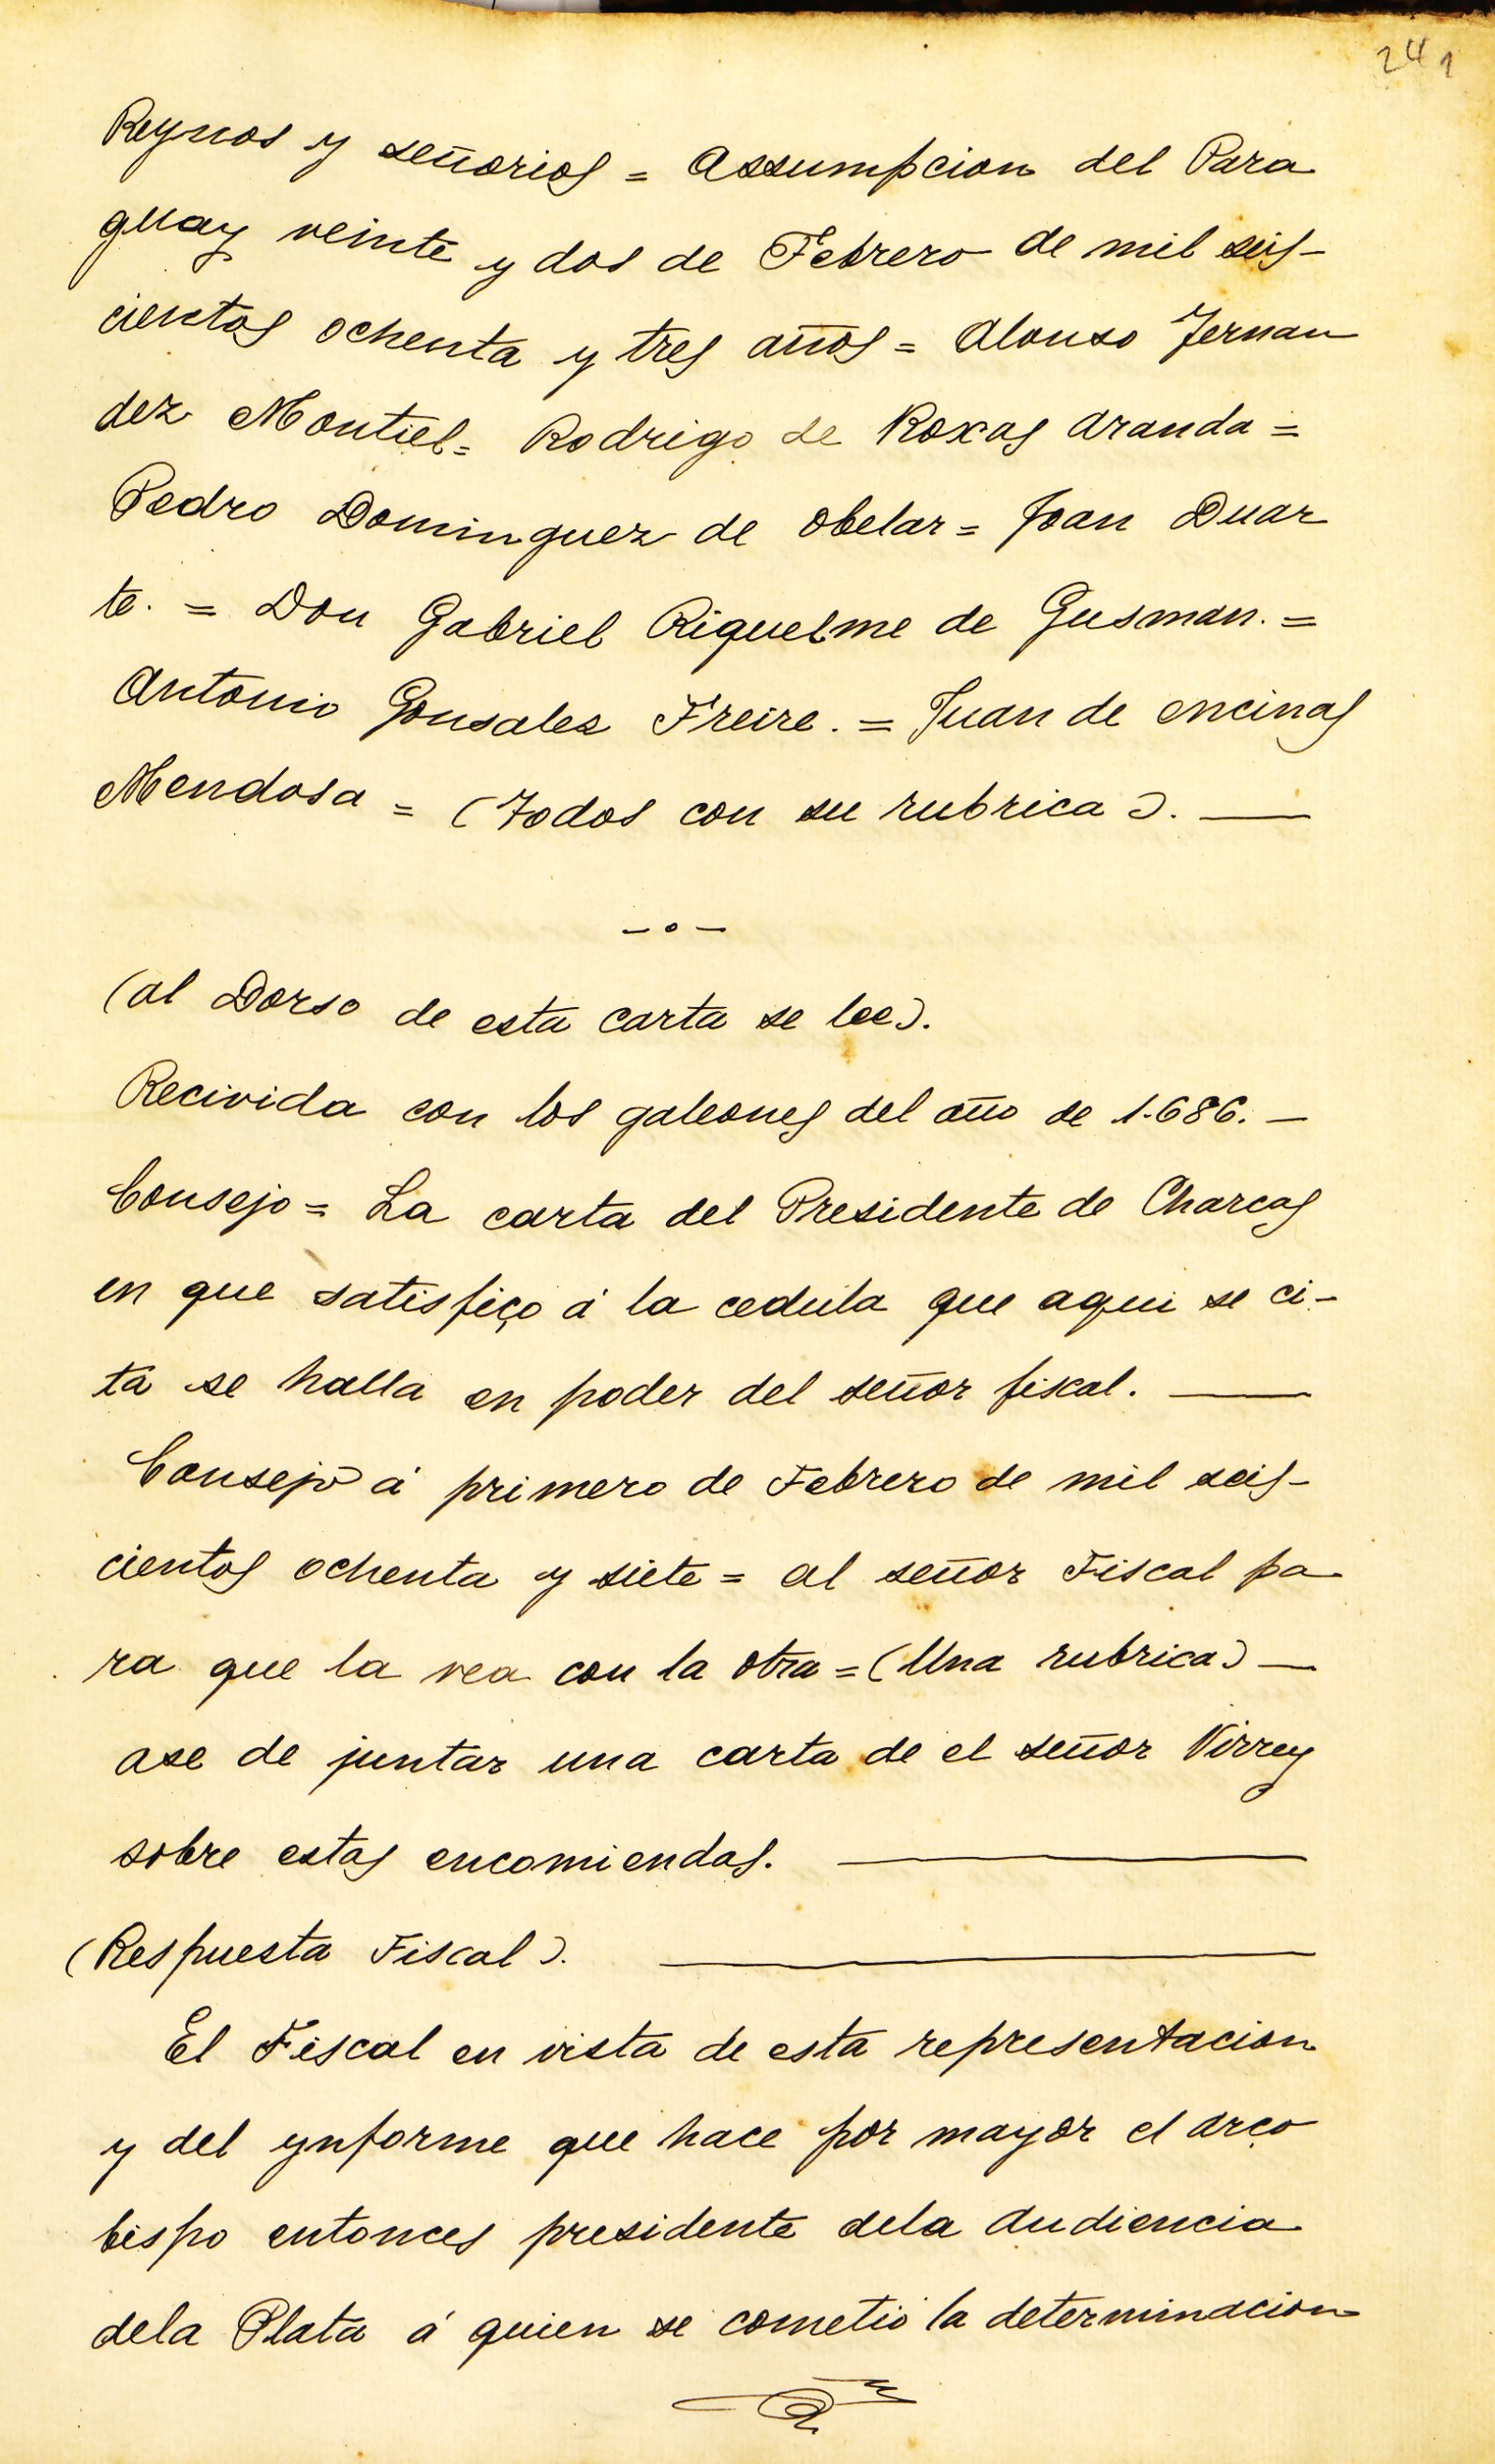 241
Reynos y señorios = Assumpcion del Para
guay veinte y dos de Febrero de mil seis-
cientos ochenta y tres años = Alonso Fernan
dez Montiel = Rodrigo de Roxas Aranda =
Pedro Dominguez de Obelar = Joan Duar
te. = Don Gabriel Riquelme de Gusman. =
Antonio Gonsales Freire. = Juan de encinas
Mendosa = (Todos con su rubrica). —
- o -
(al Dorso de esta carta se lee).
Recivida con los galeones del año de 1.686. —
Consejo = La carta del Presidente de Charcas
en que satisfiço á la cedula que aqui se ci-
ta se halla en poder del señor fiscal. —
Consejo á primero de Febrero de mil seis-
cientos ochenta y siete = al señor Fiscal pa
ra que la vea con la otra = (Una rubrica) —
ase de juntar una carta de el señor Virrey
sobre estas encomiendas. —
(Respuesta Fiscal). —
El Fiscal en vista de esta representacion
y del ynforme que hace por mayor el arço
bispo entonces presidente dela Audiencia
dela Plata á quien se cometió la determinacion